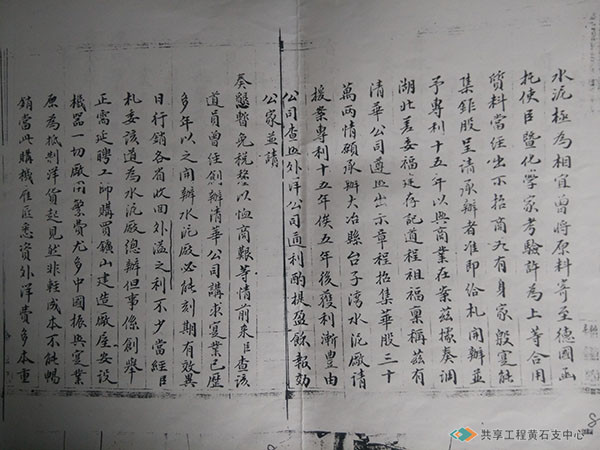 水泥極為相宜曾將原料寄至德國函
托使臣暨化學家考驗詳為上等合用
質料當經出示招商如有身家殷實能
集鉅股呈請承辦者准即給札開辦並
予專利十五年以興商業在案茲據奏調
湖北差委福建存記道程祖福稟稱茲有
清華公司遵照出示章程招集華股三十
萬兩情願承辦大冶縣台子灣水泥廠請
援案專利十五年俟五年後獲利漸豐由
公司查照外洋公司通利酌提盈餘報効
公家並請
奏懇暫免税釐以恤商艱等情前來臣查該
道員曾經創辦清華公司講求實業已歷
多年以之開辦水泥廠必能刻期有效異
日行銷各省收回外溢之利不少當經臣
札委該道為水泥廠總辦但事係創舉
正需延聘工師購買鑛山建造廠屋安設
機器一切廠用繁費尤多中國振興實業
原為抵制洋貨起見然非輕成本不能暢
銷當此購機雇匠悉資外洋費多本重
共享工程黄石支中心